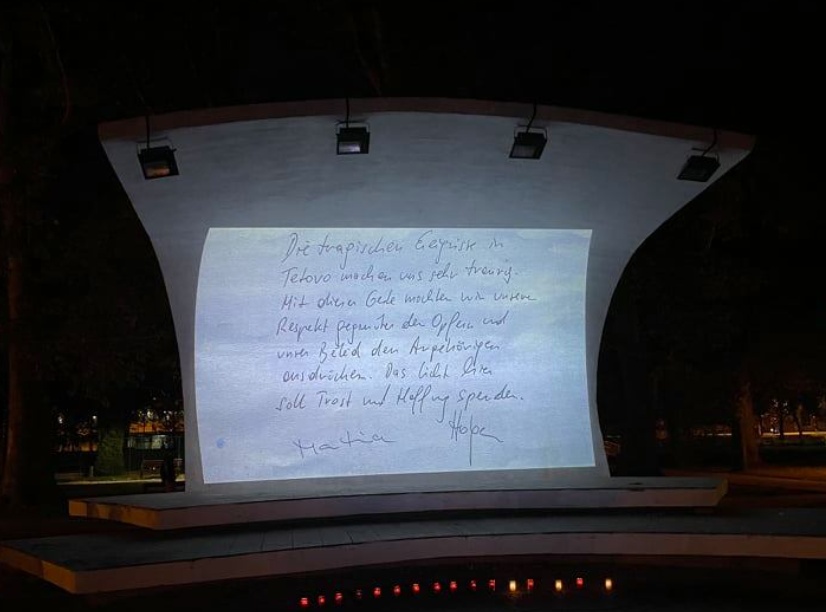 Die tragischen Ereignisse in
Tetovo machen uns sehr traurig.
Mit dieser Geste möchten wir unseren
Respekt gegenüber den Opfern und
unser Beileid den Angehörigen
ausdrücken. Das Licht hier
soll Trost und Hoffnung spenden.
Martin